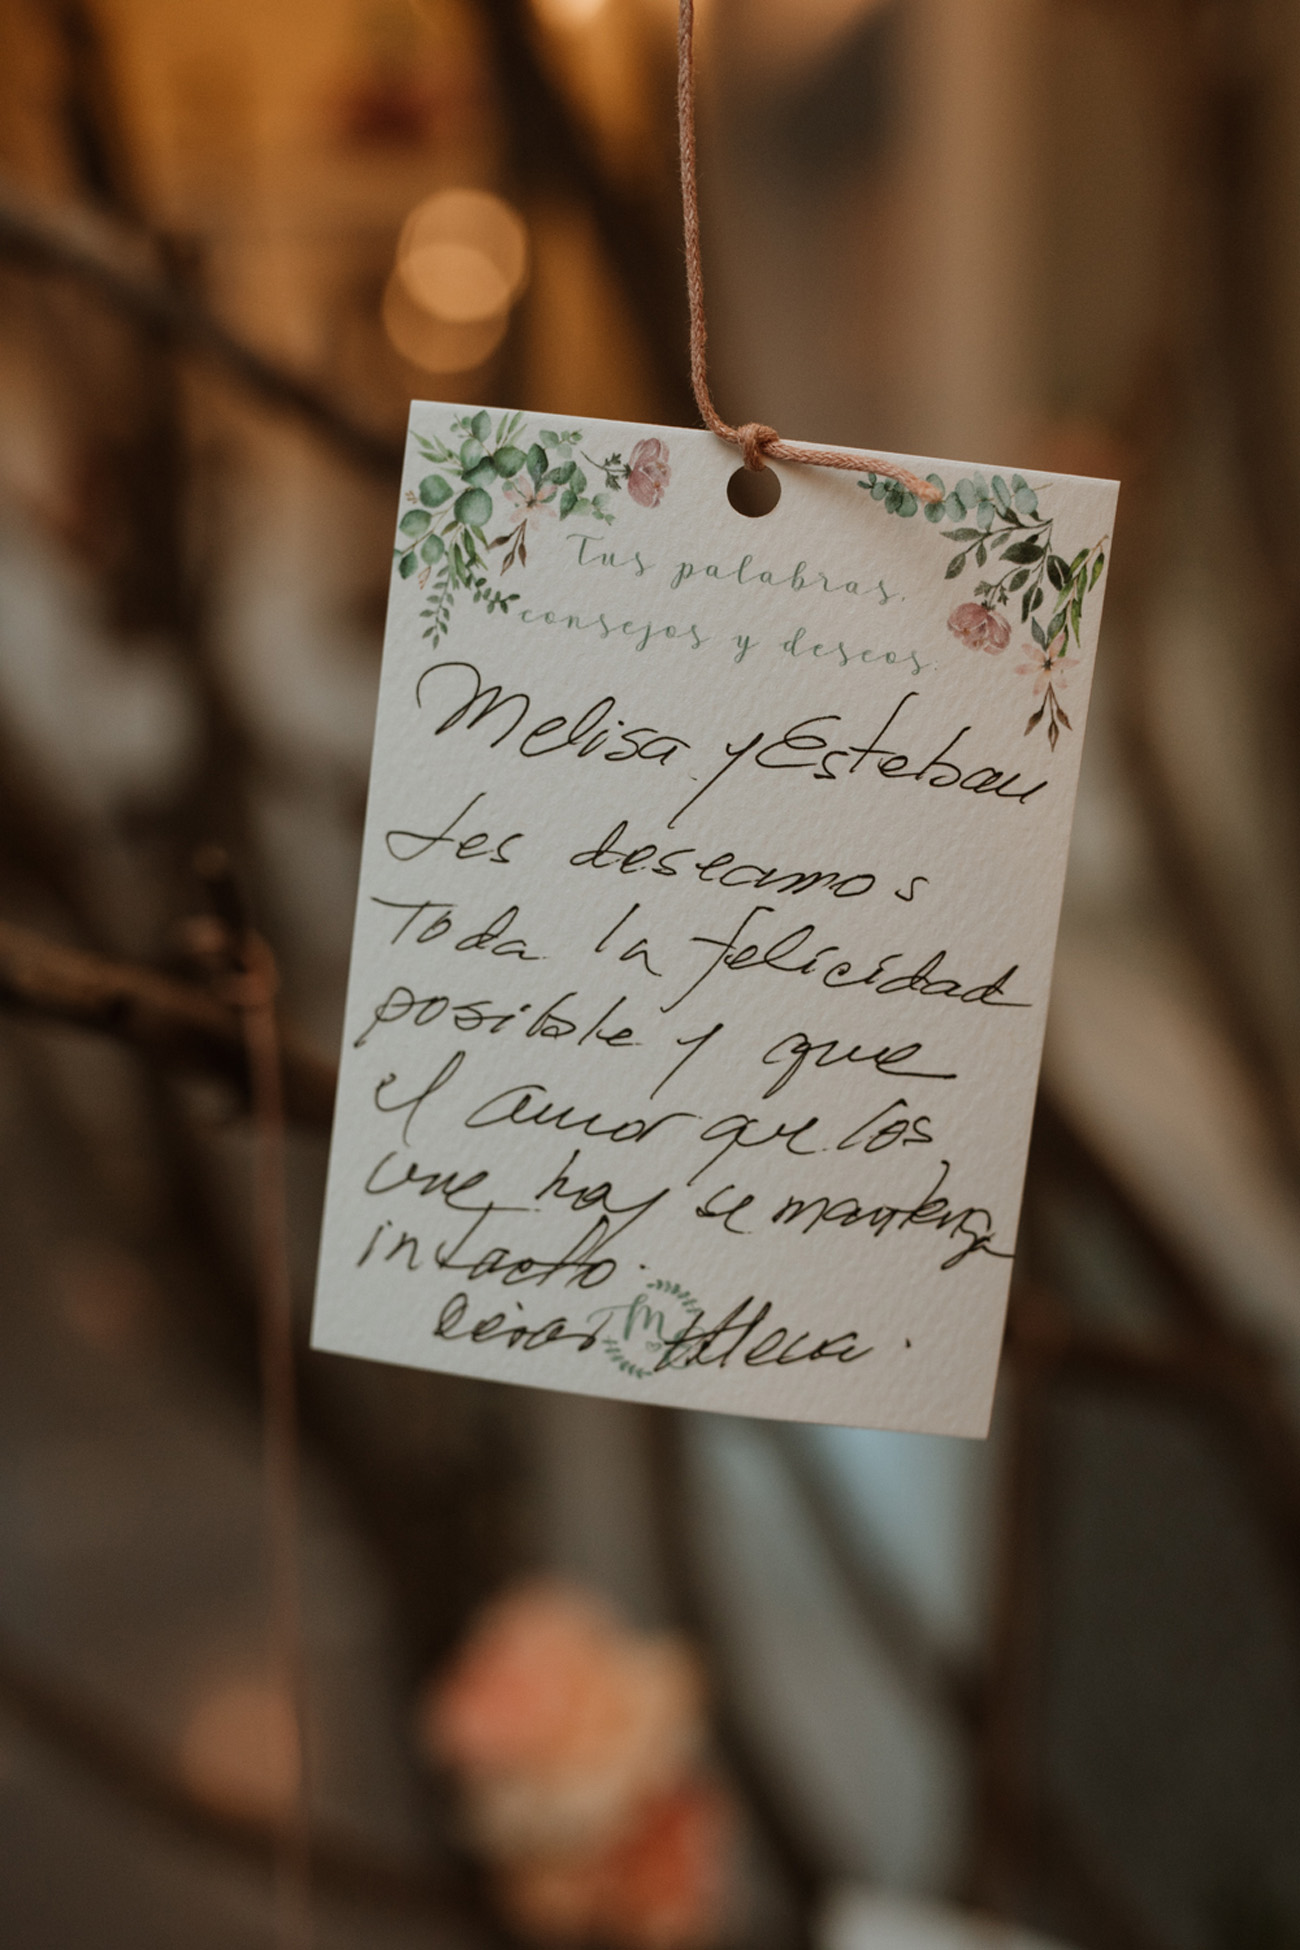 Tus palabras,
consejos y deseos.
Melisa y Esteban
Les deseamos
Toda la felicidad
posible y que
el amor que los
une hoy se mantenga
intacto.
M